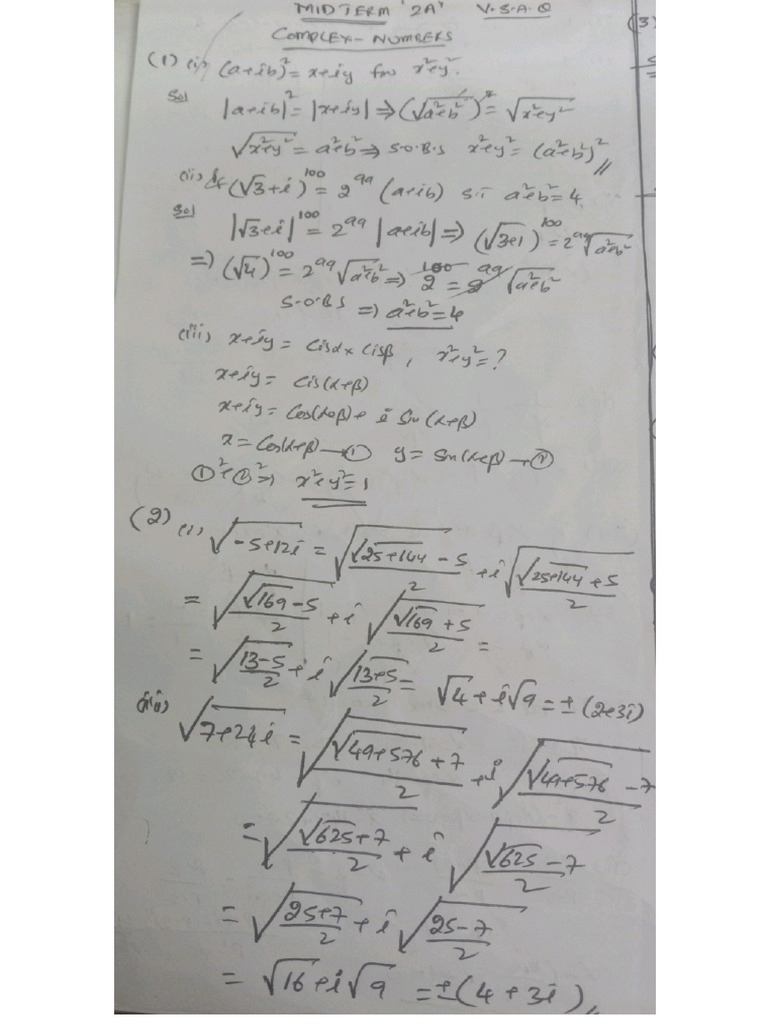 MID TERM '2A' V.S.A.Q
COMPLEX-NUMBERS
(3)
(1) (i) (a+ib)² = x+iy fin x²+y².
Sol |a+ib|² = |x+iy| ⇒ (√a²+b²)² = √x²+y²
√x²+y² = a²+b² ⇒ S.O.B.S x²+y² = (a²+b²)² //
(ii) If (√3+i)¹⁰⁰ = 2⁹⁹ (a+ib) S.T a²+b² = 4
Sol |√3+i|¹⁰⁰ = 2⁹⁹ |a+ib| ⇒ (√3+1)¹⁰⁰ = 2⁹⁹ √a²+b²
⇒ (√4)¹⁰⁰ = 2⁹⁹ √a²+b² ⇒ 2¹⁰⁰ = 2⁹⁹ √a²+b²
S.O.B.S ⇒ a²+b² = 4
(iii) x+iy = cisα × cisβ, x²+y² = ?
x+iy = cis(α+β)
x+iy = cos(α+β) + i sin(α+β)
x = cos(α+β) → ① y = sin(α+β) → ②
①² + ②² ⇒ x²+y² = 1
(2) (i) √-5+12i = √(√25+144 - 5)/2 + i √(√25+144 + 5)/2
= √(√169 - 5)/2 + i √(√169 + 5)/2 =
= √(13-5)/2 + i √(13+5)/2 = √4 + i√9 = ± (2+3i)
(ii) √7+24i = √(√49+576 + 7)/2 + i √(√49+576 - 7)/2
= √(√625 + 7)/2 + i √(√625 - 7)/2
= √(25+7)/2 + i √(25-7)/2
= √16 + i√9 = ± (4 + 3i) //